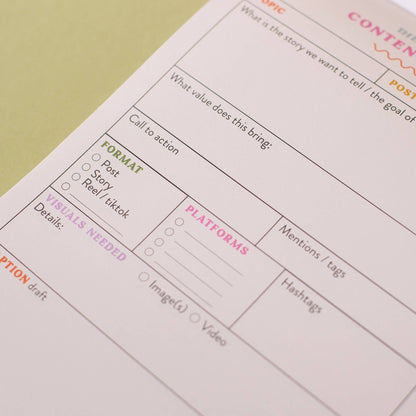 OPIC
CONTEN
What is the story we want to tell / the goal of
POST
What value does this bring:
Call to action
FORMAT
Post
Story
Reel / tiktok
PLATFORMS
Mentions / tags
VISUALS NEEDED
Details:
Image(s)
Video
Hashtags
PTION draft